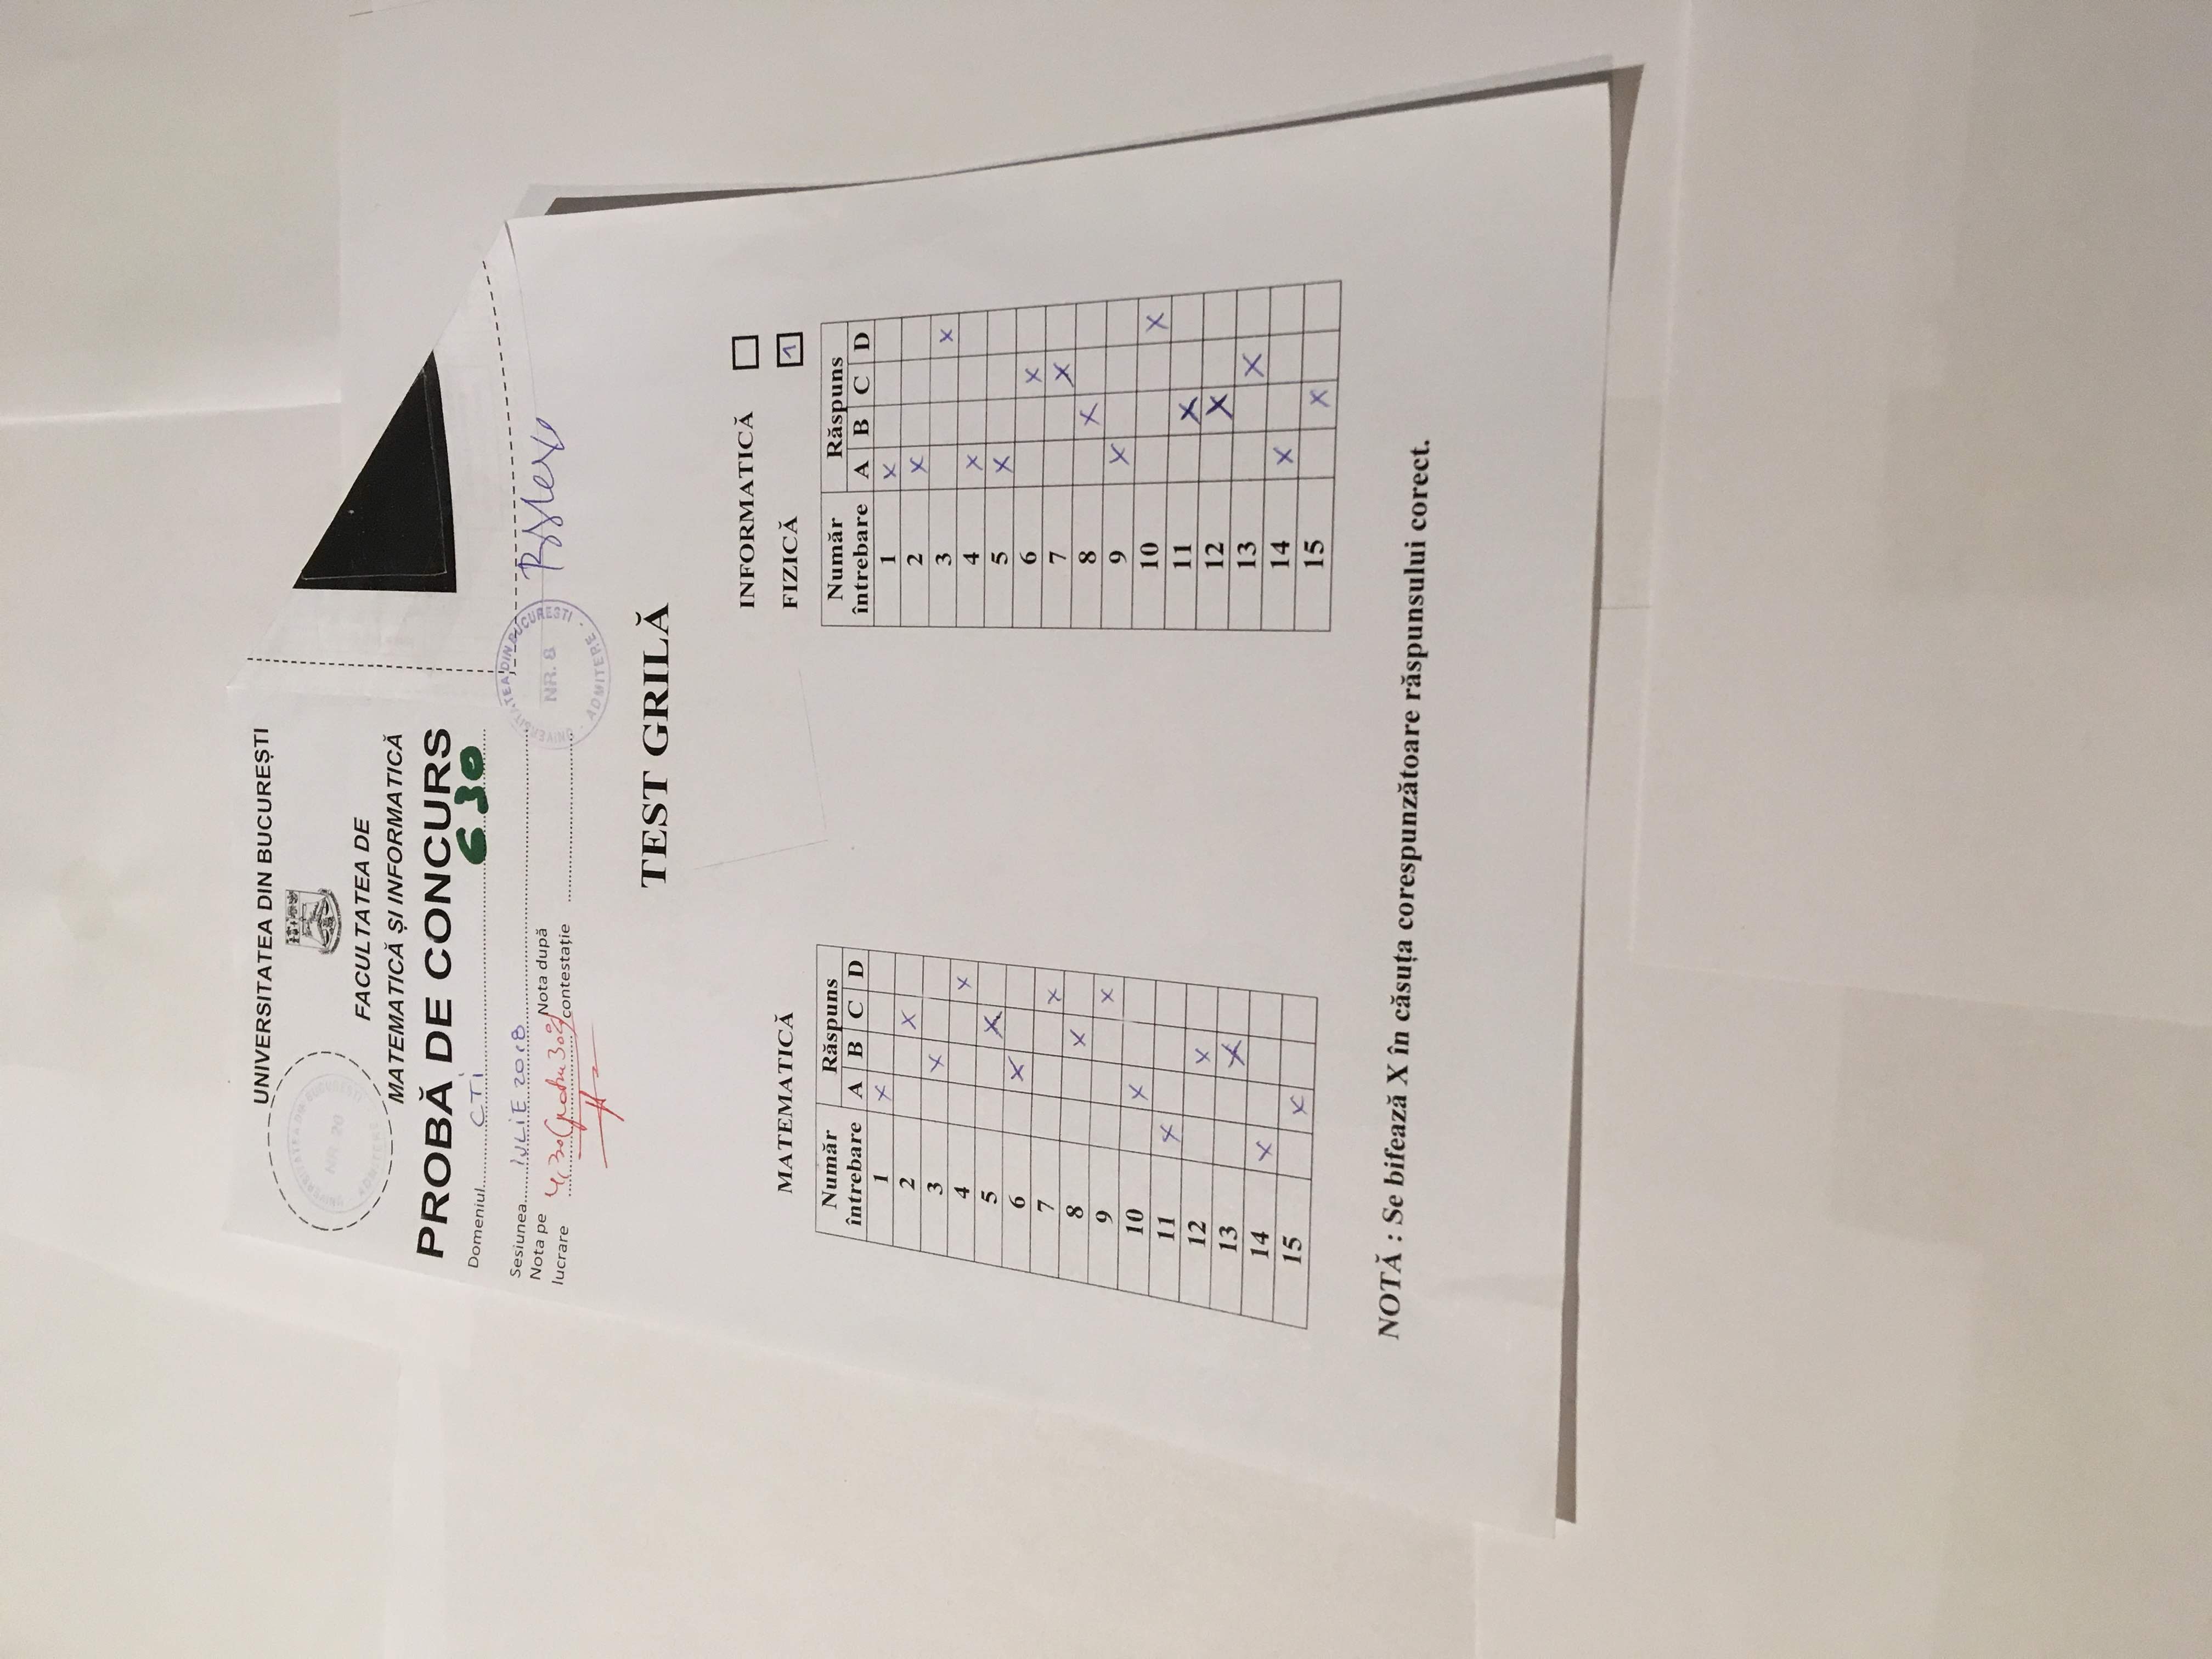 UNIVERSITATEA DIN BUCUREȘTI
UNIVERSITATEA DIN BUCUREȘTI
NR. 20
ADMITERE
FACULTATEA DE
MATEMATICĂ ȘI INFORMATICĂ
PROBĂ DE CONCURS
Domeniul CTi 630
Sesiunea IULIE 2018
Nota pe lucrare 4,30
Nota după contestație
UNIVERSITATEA DIN BUCURESTI
NR. 8
ADMITERE
TEST GRILĂ
INFORMATICĂ
MATEMATICĂ
FIZICĂ 1
Număr întrebare Răspuns
A B C D
1 X
2 X
3 X
4 X
5 X
6 X
7 X
8 X
9 X
10 X
11 X
12 X
13 X
14 X
15 X
Număr întrebare Răspuns
A B C D
1 X
2 X
3 X
4 X
5 X
6 X
7 X
8 X
9 X
10 X
11 X
12 X
13 X
14 X
15 X
NOTĂ : Se bifează X în căsuța corespunzătoare răspunsului corect.